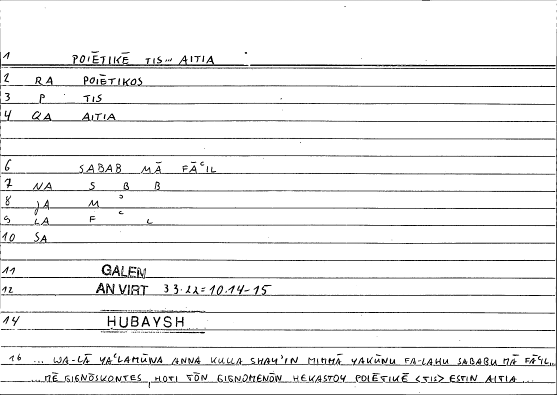 1 POIĒTIKĒ TIS... AITIA
2 RA POIĒTIKOS
3 P TIS
4 QA AITIA
6 SABAB MĀ FĀʿIL
7 NA S B B
8 JA M ʾ
9 LA F ʿ L
10 SA
11 GALEN
12 AN VIRT 33.22=10.14-15
14 HUBAYSH
16 ... WA-LĀ YAʿLAMŪNA ANNA KULLA SHAYʾIN MIMMĀ YAKŪNU FA-LAHU SABABU MĀ FĀʿIL..
...MĒ GIGNŌSKONTES, HOTI TŌN GIGNOMENŌN HEKASTOY POIĒTIKĒ <TIS> ESTIN AITIA ...